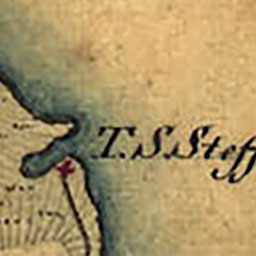 T. S. Steff